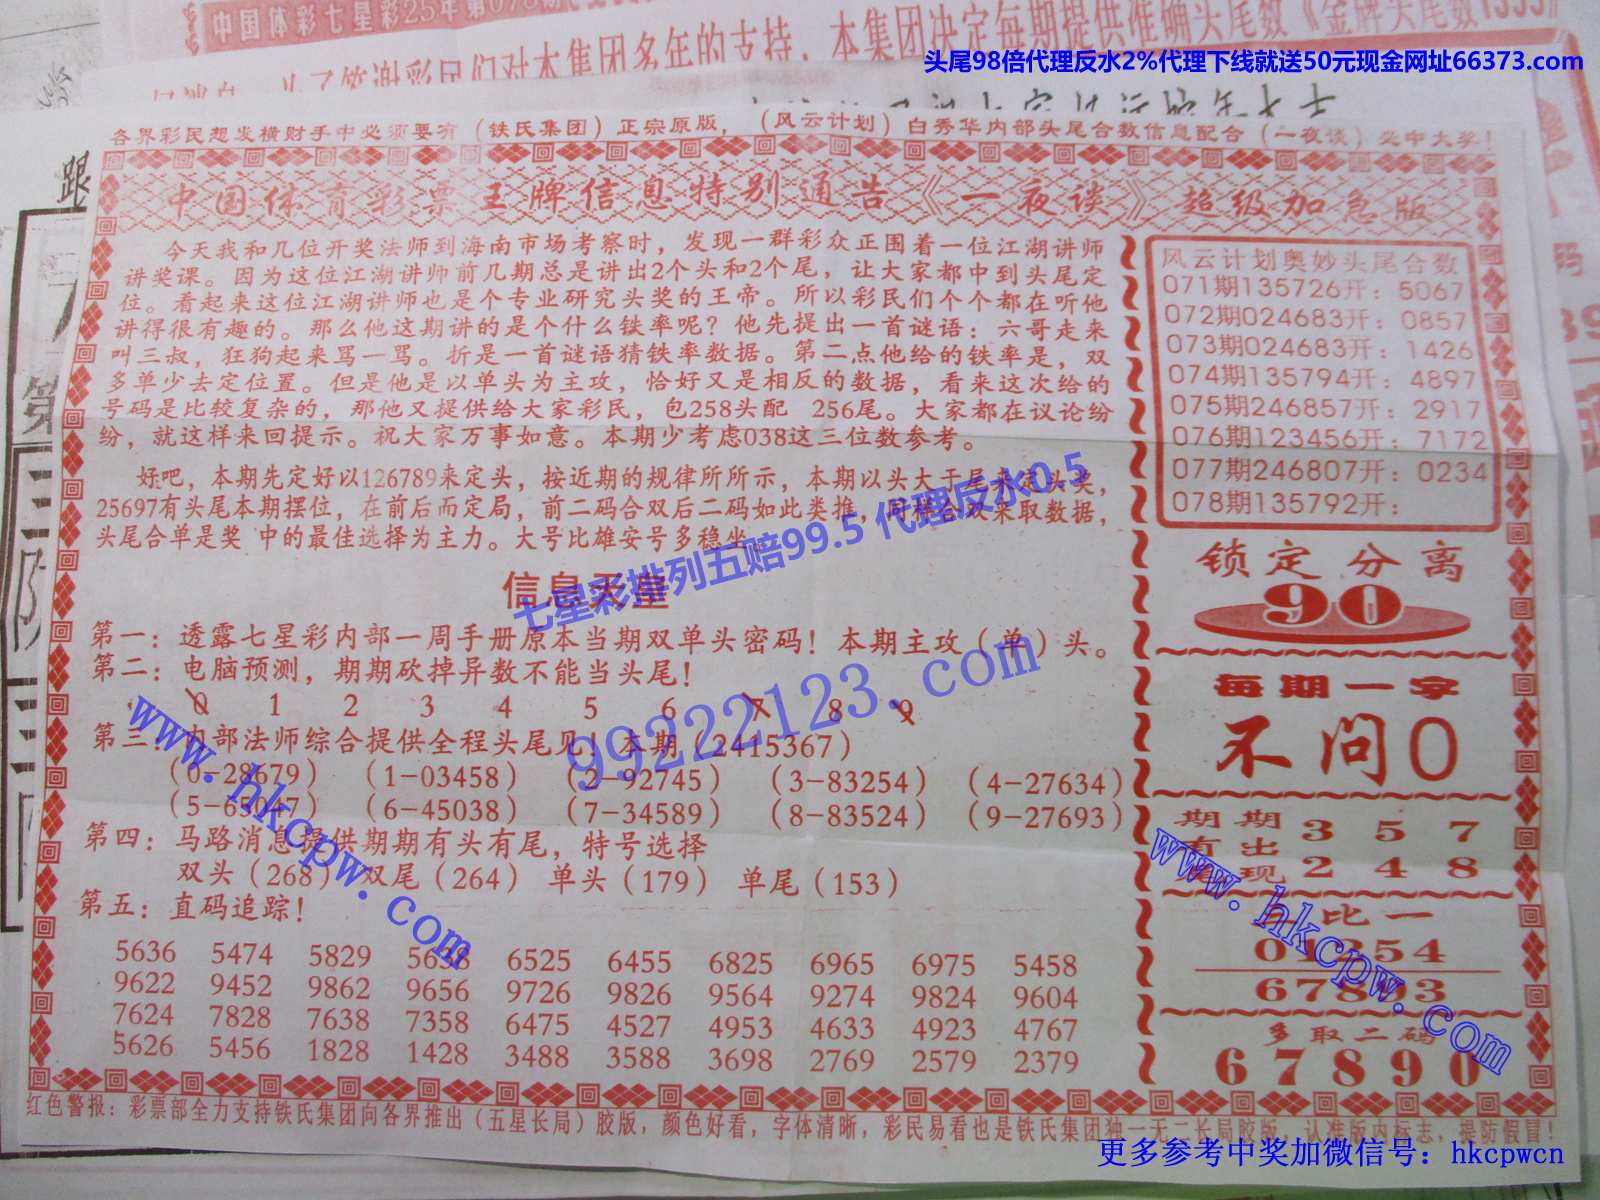 中国体彩七星彩25年第078期
们对本集团多年的支持，本集团决定每期提供准确头尾数《金牌头尾数1355》
头尾98倍代理反水2%代理下线就送50元现金网址66373.com
跟
第
各界彩民想发横财手中必须要有（铁氏集团）正宗原版，（风云计划）白秀华内部头尾合数信息配合（一夜谈）必中大奖！
中国体育彩票王牌信息特别通告《一夜谈》超级加急版
今天我和几位开奖法师到海南市场考察时，发现一群彩众正围着一位江湖讲师
讲奖课。因为这位江湖讲师前几期总是讲出2个头和2个尾，让大家都中到头尾定
位。看起来这位江湖讲师也是个专业研究头奖的王帝。所以彩民们个个都在听他
讲得很有趣的。那么他这期讲的是个什么铁率呢？他先提出一首谜语：六哥走来
叫三叔，狂狗起来骂一骂。折是一首谜语猜铁率数据。第二点他给的铁率是，双
多单少去定位置。但是他是以单头为主攻，恰好又是相反的数据，看来这次给的
号码是比较复杂的，那他又提供给大家彩民，包258头配 256尾。大家都在议论纷
纷，就这样来回提示。祝大家万事如意。本期少考虑038这三位数参考。
好吧，本期先定好以126789来定头，按近期的规律所所示，本期以头大于尾来定头奖，
25697有头尾本期摆位，在前后而定局，前二码合双后二码如此类推，同样合双来取数据，
头尾合单是奖 中的最佳选择为主力。大号比雄安号多稳坐。
七星彩排列五赔99.5 代理反水0.5
信息天皇
第一：透露七星彩内部一周手册原本当期双单头密码！本期主攻（单）头。
第二：电脑预测，期期砍掉异数不能当头尾！
0 1 2 3 4 5 6 7 8 9
第三：内部法师综合提供全程头尾见！本期（2415367）
（0-28679）（1-03458）（2-92745）（3-83254）（4-27634）
（5-65047）（6-45038）（7-34589）（8-83524）（9-27693）
第四：马路消息提供期期有头有尾，特号选择
双头（268）双尾（264） 单头（179） 单尾（153）
第五：直码追踪！
5636 5474 5829 5638 6525 6455 6825 6965 6975 5458
9622 9452 9862 9656 9726 9826 9564 9274 9824 9604
7624 7828 7638 7358 6475 4527 4953 4633 4923 4767
5626 5456 1828 1428 3488 3588 3698 2769 2579 2379
99222123.com
www.hkcpw.com
风云计划奥妙头尾合数
071期135726开：5067
072期024683开：0857
073期024683开：1426
074期135794开：4897
075期246857开：2917
076期123456开：7172
077期246807开：0234
078期135792开：
锁定分离
90
每期一字
不问0
期期 3 5 7
有出
现 2 4 8
比一
01354
67893
多取二码
67890
www.hkcpw.com
红色警报：彩票部全力支持铁氏集团向各界推出（五星长局）胶版，颜色好看，字体清晰，彩民易看也是铁氏集团独一无二长局胶版，认准版内标志，提防假冒！
更多参考中奖加微信号：hkcpwcn